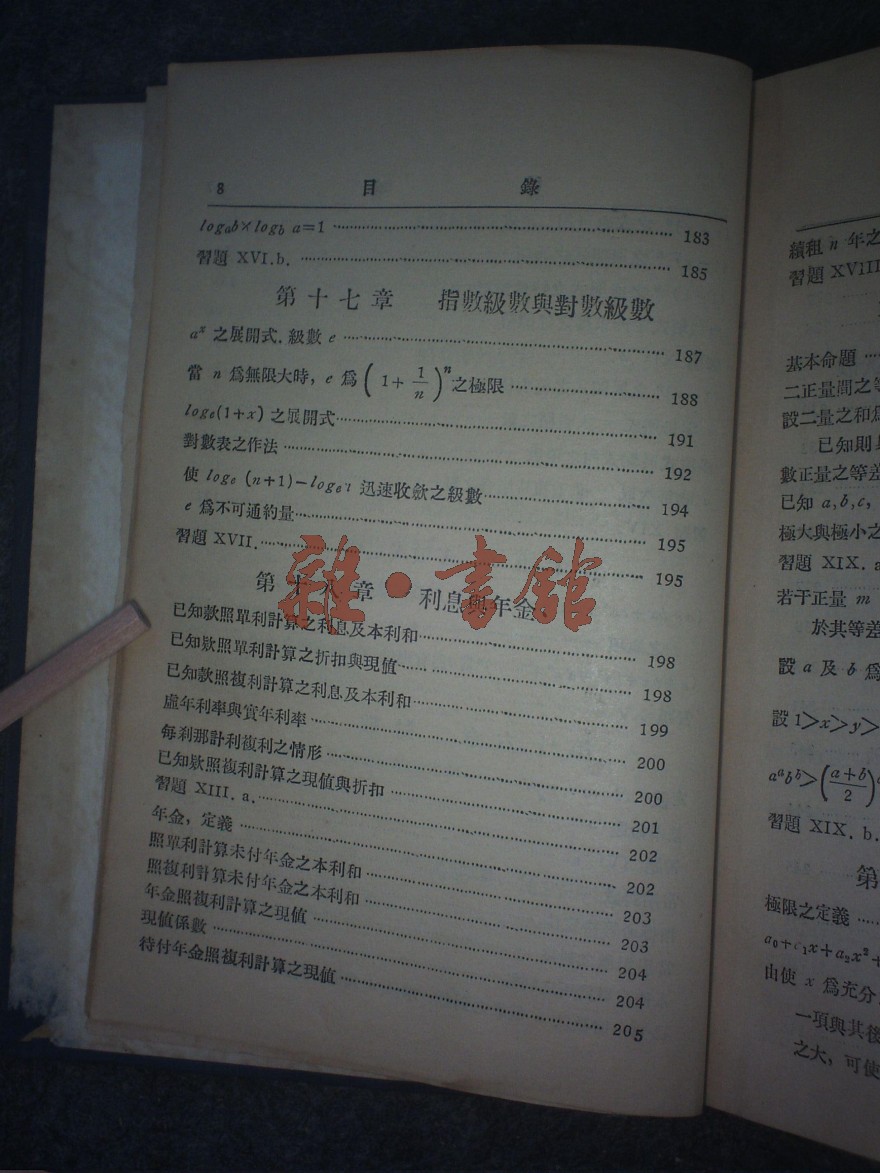 8 目 錄
logab×logb a=1 183
習題 XVI.b. 185
第十七章 指數級數與對數級數
aˣ 之展開式．級數 e 187
當 n 爲無限大時，e 爲 (1+1/n)ⁿ 之極限 188
loge(1+x) 之展開式 191
對數表之作法 192
使 loge (n+1)−loge 迅速收歛之級數 194
e 爲不可通約量 195
習題 XVII. 195
第十八章 利息與年金
雜·書舘
已知欵照單利計算之利息及本利和 198
已知欵照單利計算之折扣與現値 198
已知欵照複利計算之利息及本利和 199
虛年利率與實年利率 200
每刹那計利複利之情形 200
已知欵照複利計算之現値與折扣 201
習題 XIII. a. 202
年金，定義 202
照單利計算未付年金之本利和 203
照複利計算未付年金之本利和 203
年金照複利計算之現値 204
現値係數 204
待付年金照複利計算之現値 205
續租 n 年之
習題 XVIII
基本命題
二正量間之等
設二量之和爲
已知則
數正量之等差
已知 a,b,c,
極大與極小之
習題 XIX. a
若干正量 m
於其等差
設 a 及 b 爲
設 1>x>y>
aᵃbᵇ>((a+b)/2)
習題 XIX. b.
第
極限之定義
a₀+a₁x+a₂x²+
由使 x 爲充分
一項與其後
之大，可使